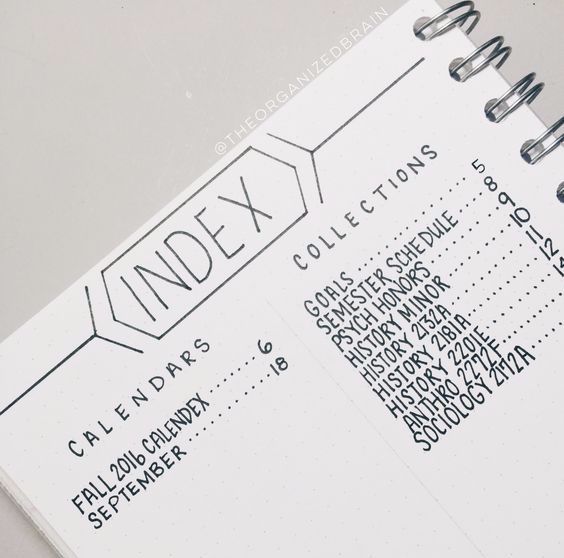 @THEORGANIZEDBRAIN
INDEX
CALENDARS
FALL 2016 CALENDEX ...... 6
SEPTEMBER .......... 18
COLLECTIONS
GOALS .............. 5
SEMESTER SCHEDULE ... 8
PSYCH HONORS ........ 9
HISTORY MINOR ....... 10
HISTORY 2132A ....... 11
HISTORY 2181A ....... 12
HISTORY 2201E .......
ANTHRO 2272F .......
SOCIOLOGY 2172A .......